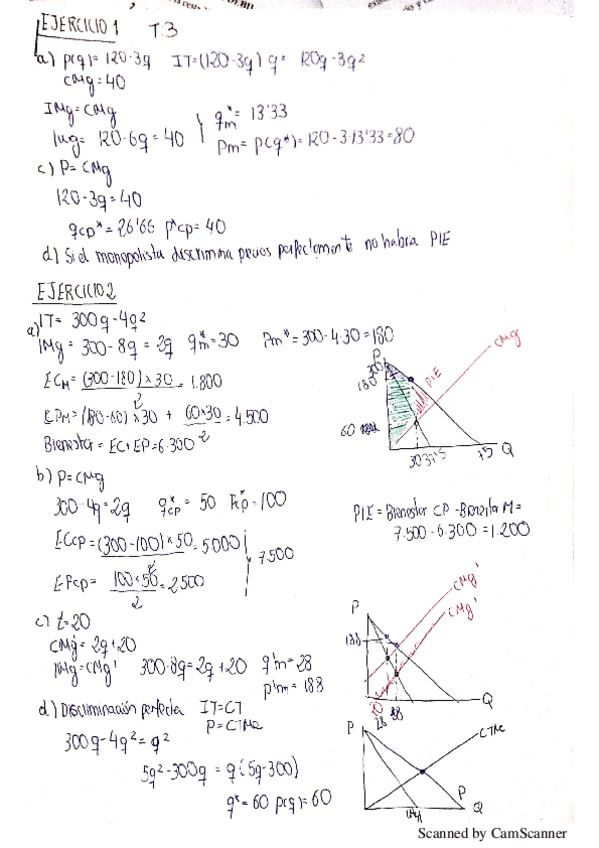 EJERCICIO 1 T.3
a) p(q) = 120-3q IT=(120-3q) q = 120q-3q²
CMg = 40
IMg = CMg
IMg = 120-6q = 40 qm* = 13'33
Pm = p(q*) = 120-3·13'33=80
c) P = CMg
120-3q=40
qcp* = 26'66 p*cp = 40
d) Si el monopolista discrimina precios perfectamente no habría PIE
EJERCICIO 2
a) IT= 300q-4q²
IMg = 300-8q = 2q qm*=30 Pm*=300-4·30=180
ECM = (300-180)×30 / 2 = 1.800
EPM = (180-60)×30 + 60×30 / 2 = 4.500
Bienestar = EC+EP=6.300
P
300
180
60
PIE
CMg
30 37'5 75 Q
b) P=CMg
300-4q=2q qcp* = 50 Pcp* = 100
ECcp = (300-100)×50 / 2 = 5000
7.500
EPcp = 100×50 / 2 = 2500
PIE = Bienestar CP - Bienestar M =
7.500-6.300 = 1.200
c) t=20
CMg' = 2q+20
IMg = CMg' 300-8q=2q+20 q'm=28
p'm= 188
P
188
20
CMg'
CMg'
28
Q
d) Discriminación perfecta IT=CT
P=CTMe
300q-4q²=q²
5q²-300q = q(5q-300)
q*=60 p(q)=60
P
CTMe
P
Q
Scanned by CamScanner